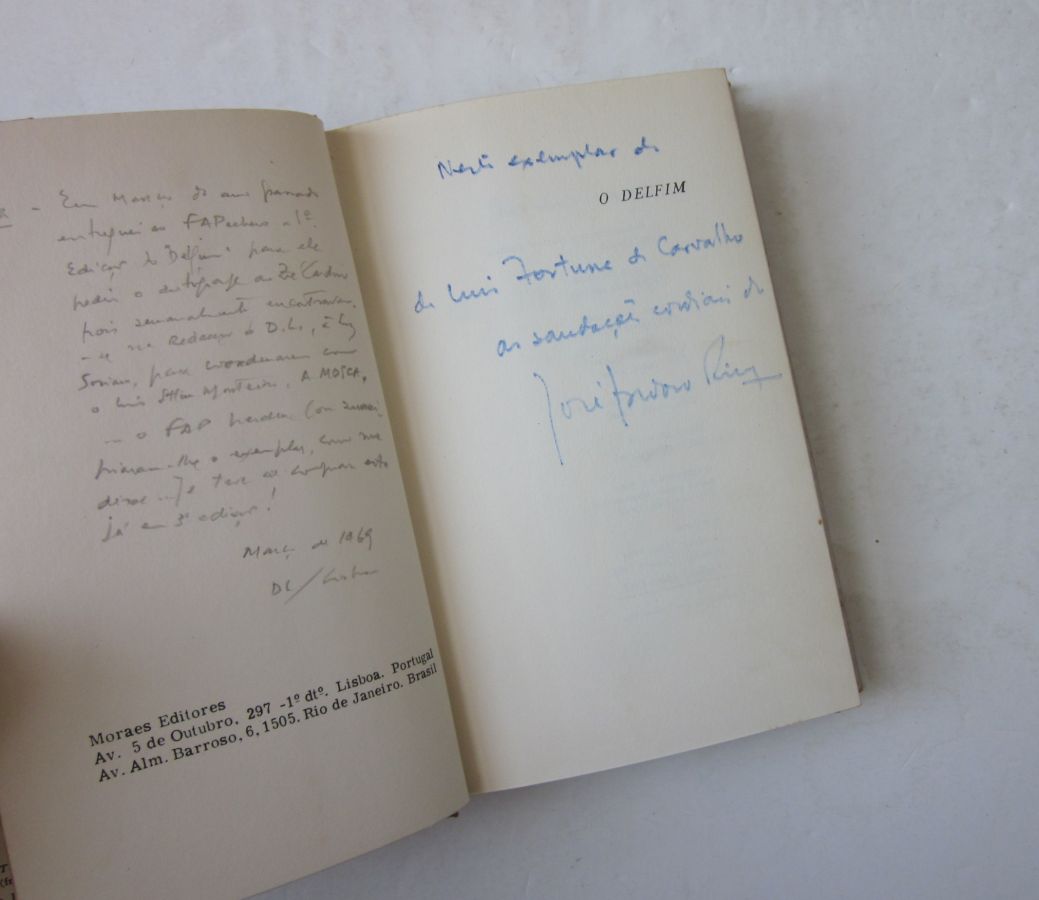 – Em Março do ano passado
entreguei ao FAPacheco a 1ª
Edição do "Delfim" para ele
pedir o autógrafo ao Zé Cardoso
pois semanalmente encontravam-
-se na Redacção do D.L., à Luz
Soriano, para coordenarem com
o Luis Sttau Monteiro, A MOSCA,
... o FAP perdeu (ou
o exemplar, como me
disse e teve de comprar este
já em 3ª edição!
Março de 1969
DL/Lisboa
Moraes Editores
Av. 5 de Outubro, 297 -1º dtº. Lisboa. Portugal
Av. Alm. Barroso, 6, 1505. Rio de Janeiro. Brasil
Neste exemplar de
O DELFIM
de Luis Fortuna de Carvalho
as saudações cordiais do
José Cardoso Pires